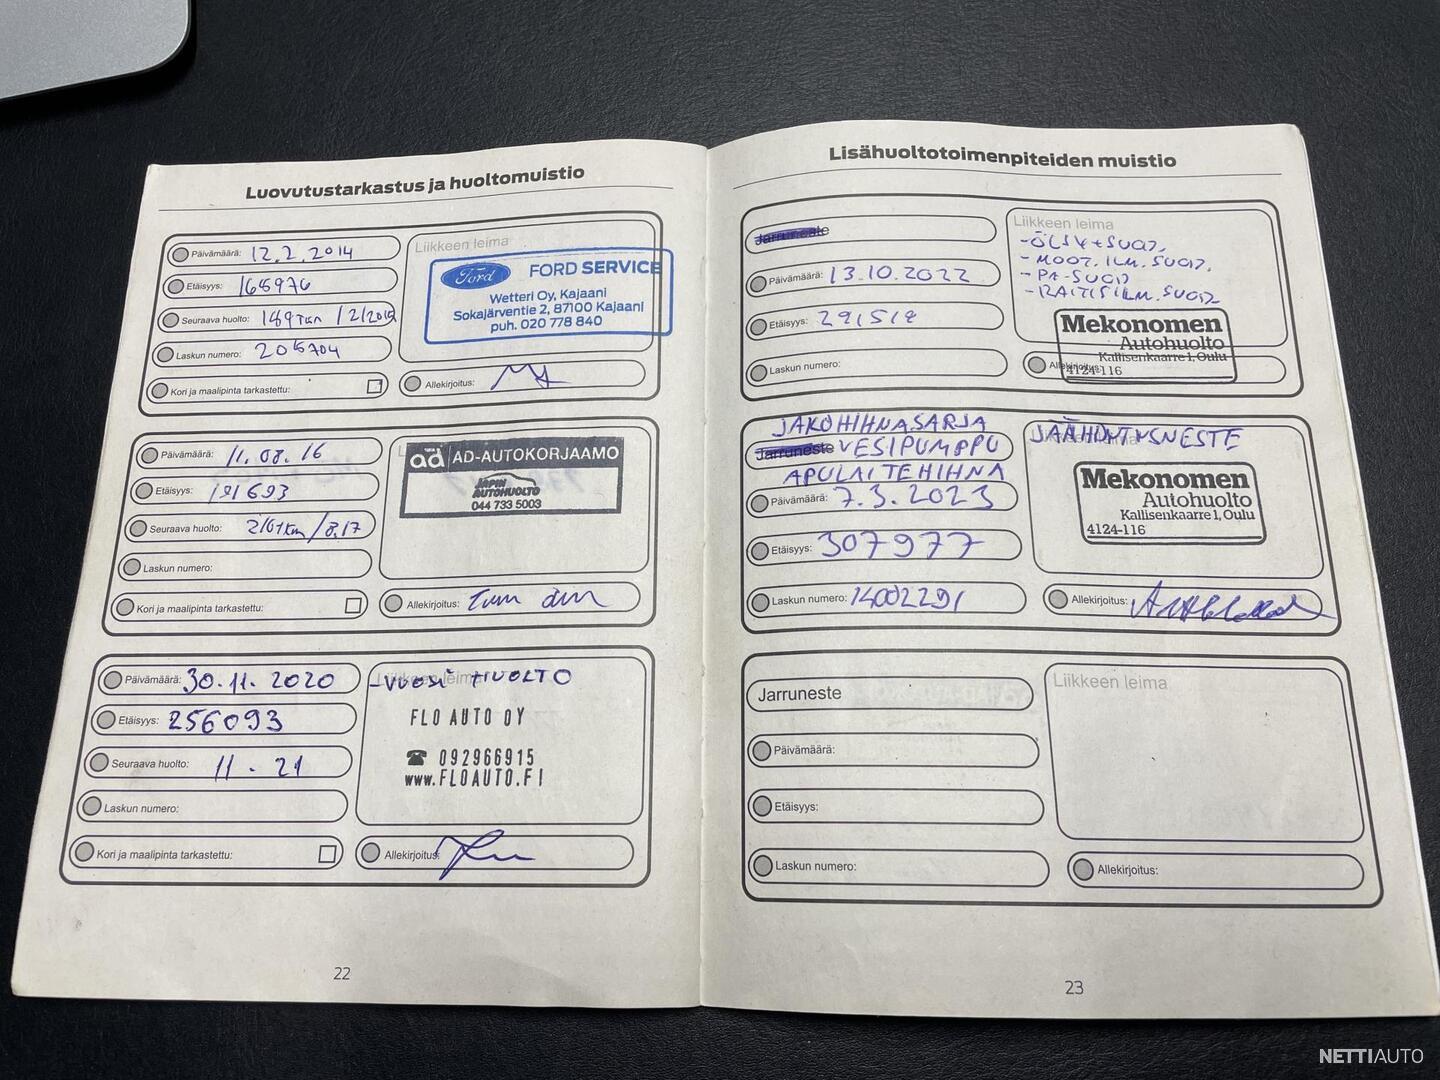 Luovutustarkastus ja huoltomuistio
Päivämäärä: 12.2.2014
Etäisyys:
Seuraava huolto:
Laskun numero:
Kori ja maalipinta tarkastettu:
Liikkeen leima
Ford
FORD SERVICE
Wetteri Oy, Kajaani
Sokajärventie 2, 87100 Kajaani
puh. 020 778 840
Allekirjoitus:
Päivämäärä: 11.08.16
Etäisyys: 191693
Seuraava huolto:
Laskun numero:
Kori ja maalipinta tarkastettu:
ad AD-AUTOKORJAAMO
JAPIN
AUTOHUOLTO
044 733 5003
Allekirjoitus:
Päivämäärä: 30.11.2020
Etäisyys: 256093
Seuraava huolto: 11-21
Laskun numero:
Kori ja maalipinta tarkastettu:
Liikkeen leima
-VUOSI HUOLTO
FLO AUTO OY
☎ 092966915
www.FLOAUTO.FI
Allekirjoitus:
22
Lisähuoltotoimenpiteiden muistio
Jarruneste
Päivämäärä: 13.10.2022
Etäisyys: 291518
Laskun numero:
Liikkeen leima
- MOOT. ILM. SUOD.
- PA-SUOD
- RAITISILM. SUOD
Mekonomen
Autohuolto
Kallisenkaarre 1, Oulu
4124-116
Allekirjoitus:
JAKOHIHNASARJA
Jarruneste VESIPUMPPU
APULAITEHIHNA
Päivämäärä: 7.3.2023
Etäisyys: 307977
Laskun numero: 14002291
JÄÄHDYTYSNESTE
Mekonomen
Autohuolto
Kallisenkaarre 1, Oulu
4124-116
Allekirjoitus:
Jarruneste
Päivämäärä:
Etäisyys:
Laskun numero:
Liikkeen leima
Allekirjoitus:
23
NETTIAUTO